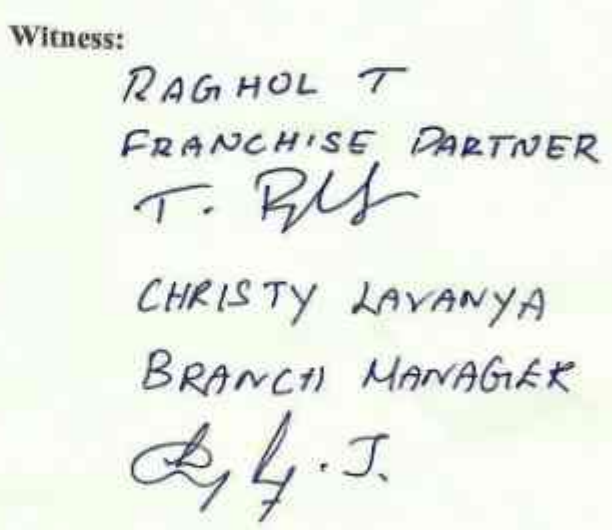 Witness:
RAGHOL T
FRANCHISE PARTNER
T.
CHRISTY LAVANYA
BRANCH MANAGER
J.